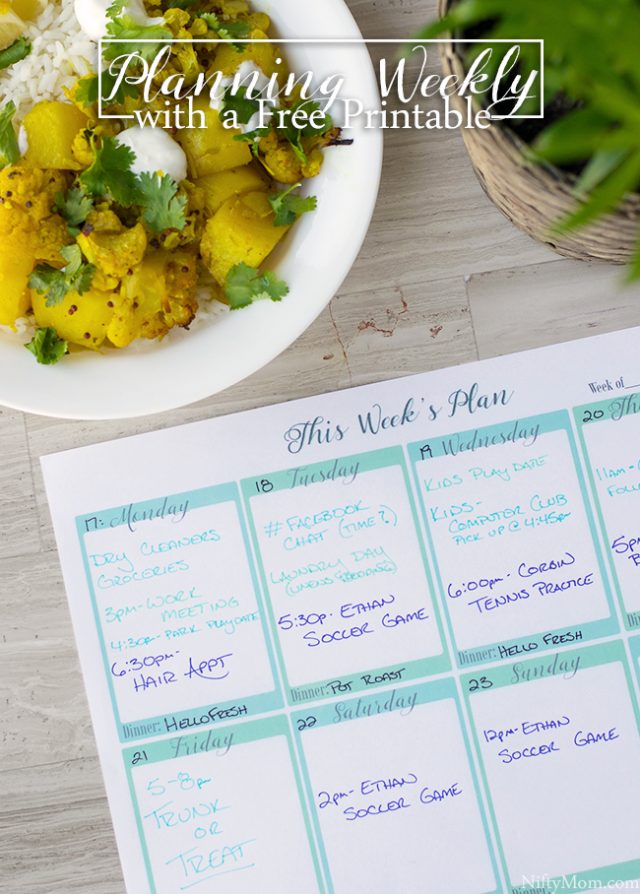 Planning Weekly
with a Free Printable
This Week's Plan
Week of
17 Monday
DRY CLEANERS
GROCERIES
3pm- WORK
MEETING
4:30p- PARK PLAYDATE
6:30pm-
HAIR APPT
Dinner: HELLOFRESH
18 Tuesday
#FACEBOOK
CHAT (TIME?)
LAUNDRY DAY
5:30p- ETHAN
SOCCER GAME
Dinner: POT ROAST
19 Wednesday
KIDS PLAY DATE
KIDS-
COMPUTER CLUB
PICK UP @ 4:45p
6:00pm- CORBIN
TENNIS PRACTICE
Dinner: HELLO FRESH
20 Thu
11am-
FOLLO
5pm
21 Friday
5-8pm
TRUNK
OR
TREAT
22 Saturday
2pm- ETHAN
SOCCER GAME
23 Sunday
12pm- ETHAN
SOCCER GAME
NiftyMom.com